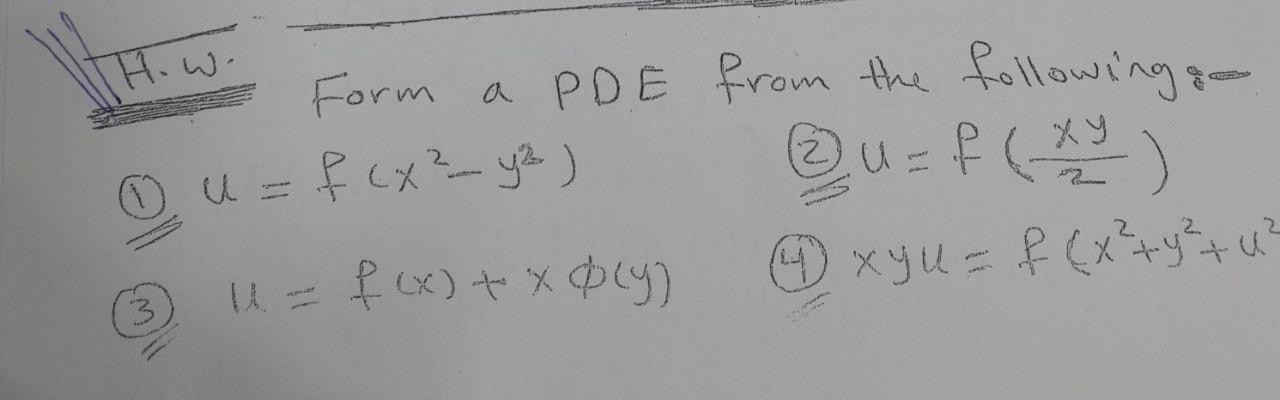 H.W. Form a PDE from the following:-
① u = f(x²-y²) ② u = f(xy/2)
③ u = f(x) + x ϕ(y) ④ xyu = f(x²+y²+u²